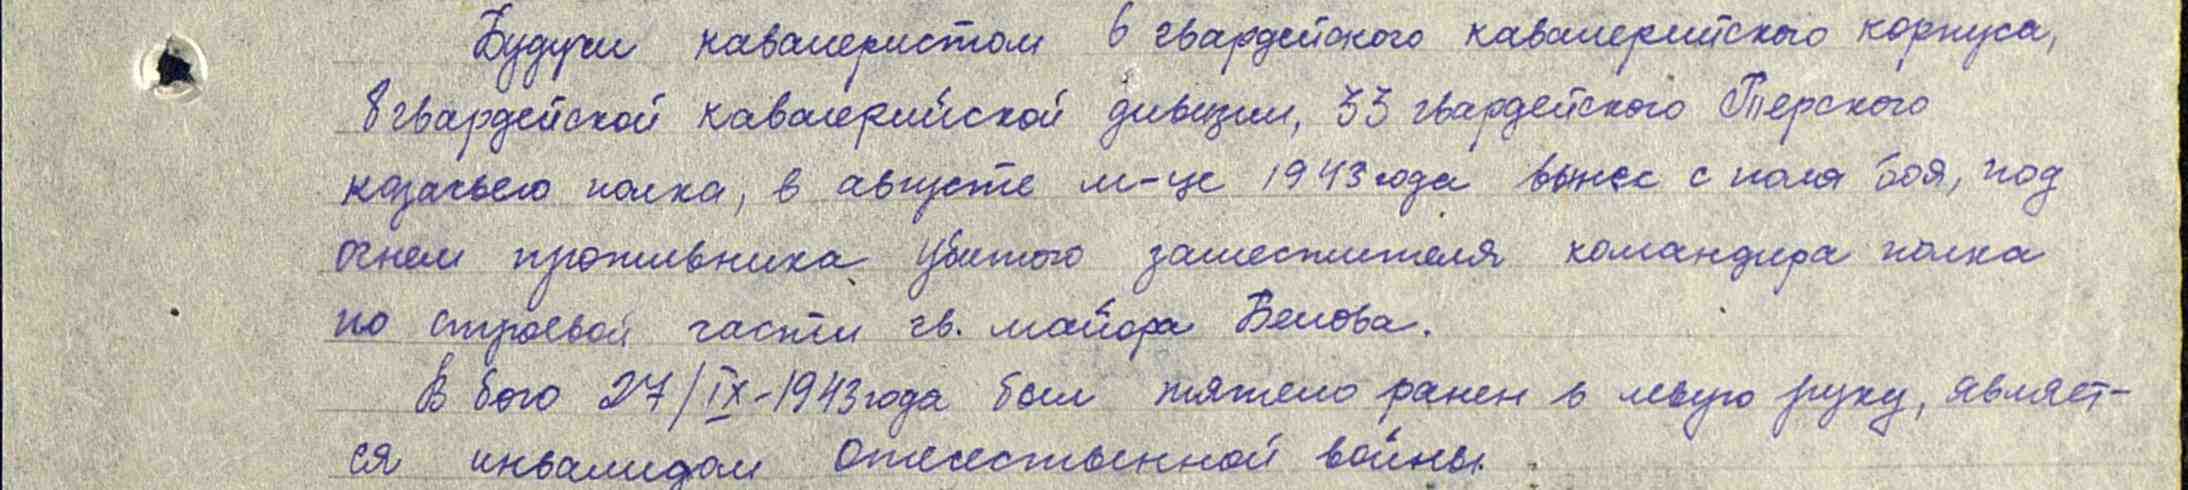 Будучи кавалеристом 6 гвардейского кавалерийского корпуса,
8 гвардейской кавалерийской дивизии, 33 гвардейского Терского
казачьего полка, в августе м-це 1943 года вынес с поля боя, под
огнем противника убитого заместителя командира полка
по строевой части гв. майора Белова.
В бою 27/IX-1943 года был тяжело ранен в левую руку, являет-
ся инвалидом Отечественной войны.